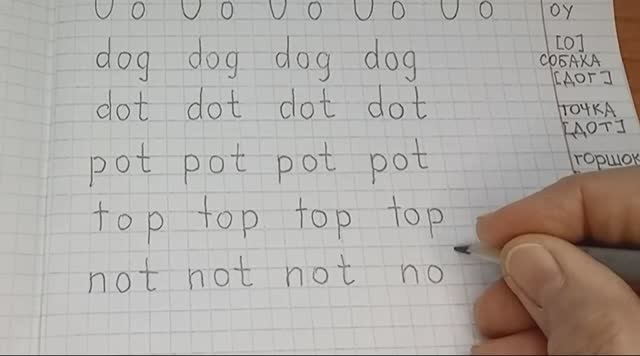 O o O o O o O o O o
dog dog dog dog
dot dot dot dot
pot pot pot pot
top top top top
not not not no
ОУ
[О]
СОБАКА
[ДОГ]
ТОЧКА
[ДОТ]
ГОРШОК